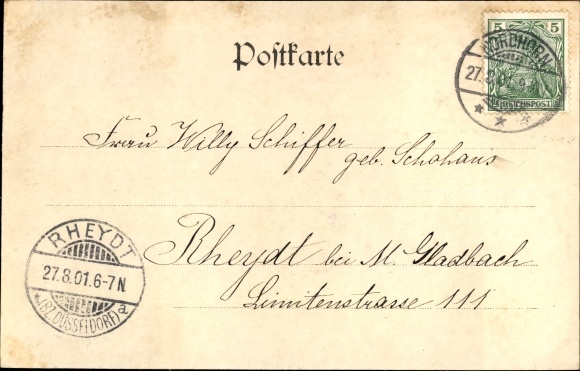 Postkarte
5 5
REICHSPOST
NORDHORN
27.8.01
Frau Willy Schiffer
geb. Schohaus
Rheydt bei M. Gladbach
Limitenstrasse 111
RHEYDT
27.8.01.6-7N.
(BZ. DÜSSELDORF)